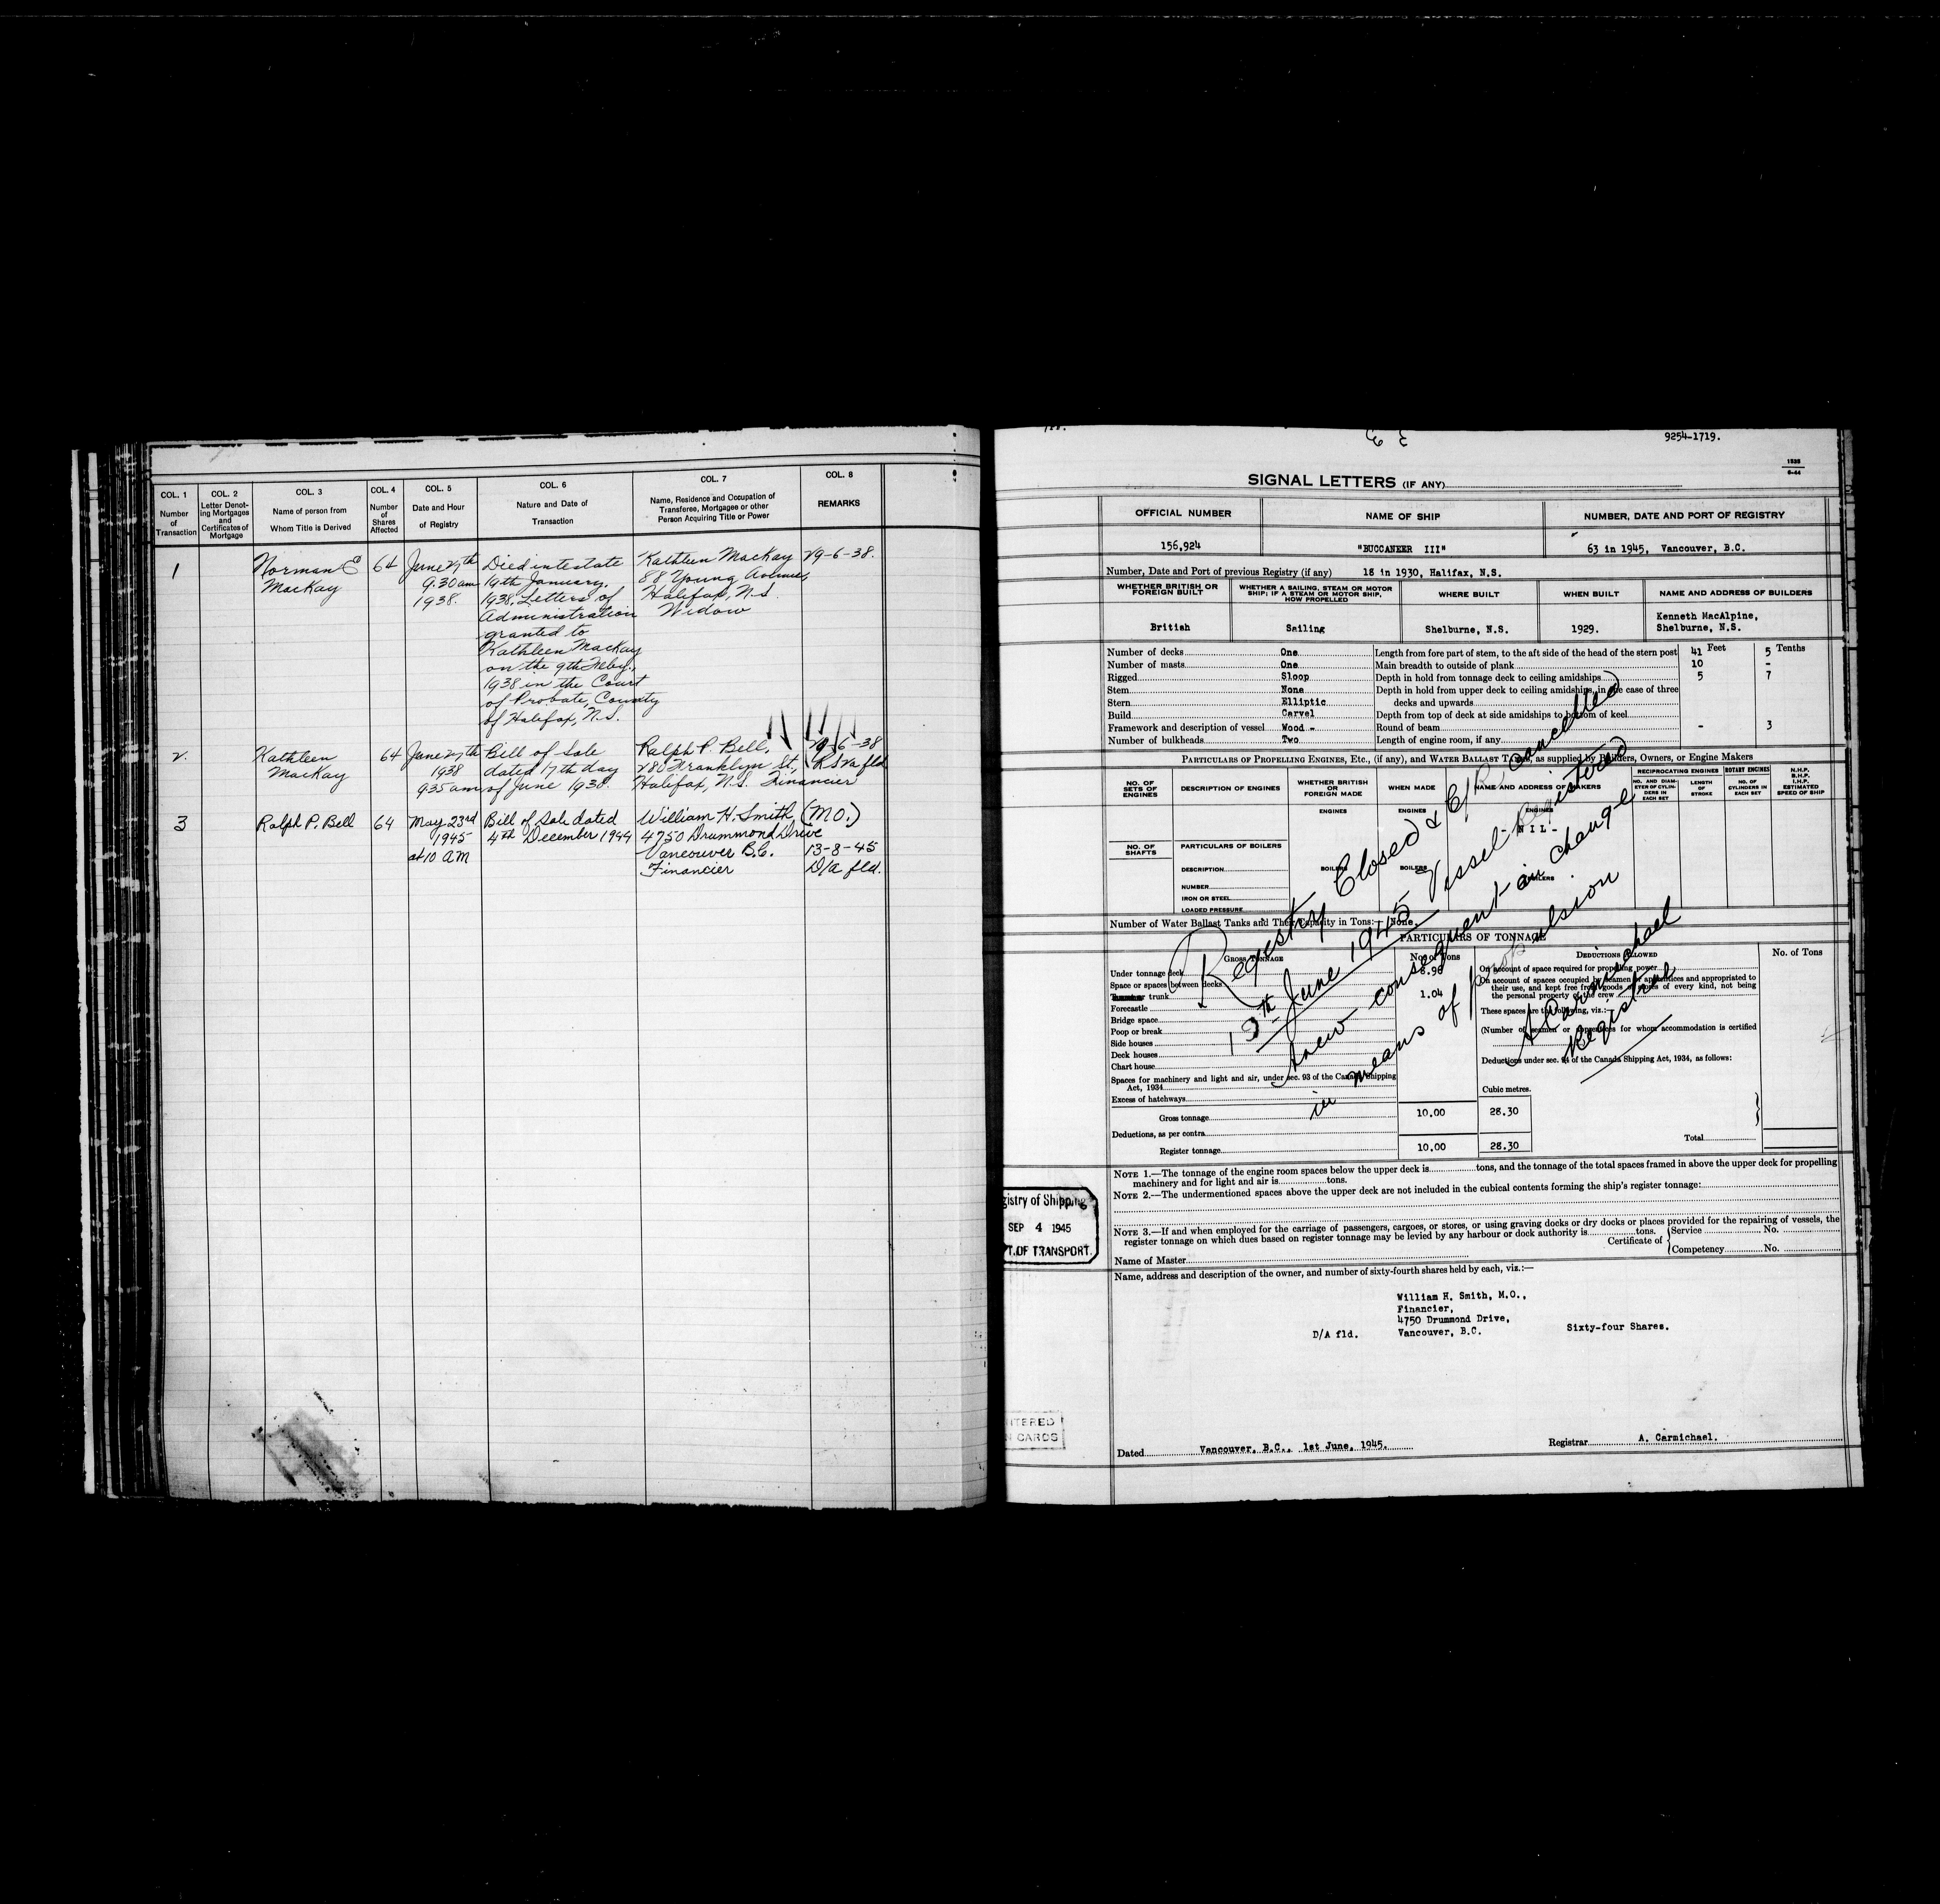 COL. 1
Number
of
Transaction
COL. 2
Letter Denot-
ing Mortgages
and
Certificates of
Mortgage
COL. 3
Name of person from
Whom Title is Derived
COL. 4
Number
of
Shares
Affected
COL. 5
Date and Hour
of Registry
COL. 6
Nature and Date of
Transaction
COL. 7
Name, Residence and Occupation of
Transferee, Mortgagee or other
Person Acquiring Title or Power
COL. 8
REMARKS
1
Norman
MacKay
64
June 27th
9.30am
1938.
Died intestate
19th January,
1938. Letters of
Administration
granted to
Kathleen MacKay
on the 9th Feby.
1938 in the Court
of Probate, County
of Halifax, N.S.
Kathleen MacKay
88 Young Avenue,
Halifax, N.S.
Widow
29-6-38.
2.
Kathleen
MacKay
64
June 27th
1938
935am
Bill of Sale
dated 17th day
of June 1938.
Ralph P. Bell,
280 Franklyn St.,
Halifax, N.S. Financier
29-6-38
fld
3
Ralph P. Bell
64
May 23rd
1945
at 10 AM
Bill of Sale dated
4th December 1944
William H. Smith,
4750 Drummond Drive
Vancouver B.C.
Financier
(M.O.)
13-8-45
D/A fld.
9254-1719.
1535
6-44
SIGNAL LETTERS (IF ANY)
OFFICIAL NUMBER
NAME OF SHIP
NUMBER, DATE AND PORT OF REGISTRY
156,924
"BUCCANEER III"
63 in 1945, Vancouver, B.C.
Number, Date and Port of previous Registry (if any) 18 in 1930, Halifax, N.S.
WHETHER BRITISH OR
FOREIGN BUILT
WHETHER A SAILING, STEAM OR MOTOR
SHIP; IF A STEAM OR MOTOR SHIP,
HOW PROPELLED
WHERE BUILT
WHEN BUILT
NAME AND ADDRESS OF BUILDERS
British
Sailing
Shelburne, N.S.
1929.
Kenneth MacAlpine,
Shelburne, N.S.
Number of decks One
Number of masts One
Rigged Sloop
Stem None
Stern Elliptic
Build Carvel
Framework and description of vessel Wood -
Number of bulkheads Two
Feet Tenths
Length from fore part of stem, to the aft side of the head of the stern post 41 5
Main breadth to outside of plank 10 -
Depth in hold from tonnage deck to ceiling amidships 5 7
Depth in hold from upper deck to ceiling amidships, in the case of three
decks and upwards
Depth from top of deck at side amidships to bottom of keel
Round of beam - 3
Length of engine room, if any
PARTICULARS OF PROPELLING ENGINES, ETC., (if any), and WATER BALLAST TANKS, as supplied by Builders, Owners, or Engine Makers
NO. OF
SETS OF
ENGINES
DESCRIPTION OF ENGINES
WHETHER BRITISH
OR
FOREIGN MADE
WHEN MADE
NAME AND ADDRESS OF MAKERS
RECIPROCATING ENGINES
NO. AND DIAM-
ETER OF CYLIN-
DERS IN
EACH SET
LENGTH
OF
STROKE
ROTARY ENGINES
NO. OF
CYLINDERS IN
EACH SET
N.H.P.
B.H.P.
I.H.P.
ESTIMATED
SPEED OF SHIP
ENGINES
ENGINES
ENGINES
- N I L -
NO. OF
SHAFTS
PARTICULARS OF BOILERS
DESCRIPTION
NUMBER
IRON OR STEEL
LOADED PRESSURE
BOILERS
BOILERS
BOILERS
Number of Water Ballast Tanks and Their Capacity in Tons:— None.
PARTICULARS OF TONNAGE
GROSS TONNAGE
No. of Tons
DEDUCTIONS ALLOWED
No. of Tons
Under tonnage deck 8.96
Space or spaces between decks
trunk 1.04
Forecastle
Bridge space
Poop or break
Side houses
Deck houses
Chart house
Spaces for machinery and light and air, under sec. 93 of the Canada Shipping
Act, 1934
Excess of hatchways
Gross tonnage 10.00 28.30
Deductions, as per contra
Register tonnage 10.00 28.30
Cubic metres.
On account of space required for propelling power
On account of spaces occupied by seamen or apprentices and appropriated to
their use, and kept free from goods or stores of every kind, not being
the personal property of the crew
These spaces are the following, viz.:—
(Number of seamen or apprentices for whom accommodation is certified
Deductions under sec. 94 of the Canada Shipping Act, 1934, as follows:
Total
Registry Closed & C/R cancelled
13th June 1945 Vessel Registered
Anew consequent on change
in means of propulsion
A Carmichael
Registrar
NOTE 1.—The tonnage of the engine room spaces below the upper deck is tons, and the tonnage of the total spaces framed in above the upper deck for propelling
machinery and for light and air is tons.
NOTE 2.—The undermentioned spaces above the upper deck are not included in the cubical contents forming the ship's register tonnage:
NOTE 3.—If and when employed for the carriage of passengers, cargoes, or stores, or using graving docks or dry docks or places provided for the repairing of vessels, the
register tonnage on which dues based on register tonnage may be levied by any harbour or dock authority is tons.
Certificate of
Service No.
Competency No.
Name of Master
gistry of Shipping
SEP 4 1945
T. OF TRANSPORT.
Name, address and description of the owner, and number of sixty-fourth shares held by each, viz.:—
William H. Smith, M.O.,
Financier,
4750 Drummond Drive,
D/A fld. Vancouver, B.C. Sixty-four Shares.
TERED
CARDS
Dated Vancouver, B.C., 1st June, 1945. Registrar A. Carmichael.